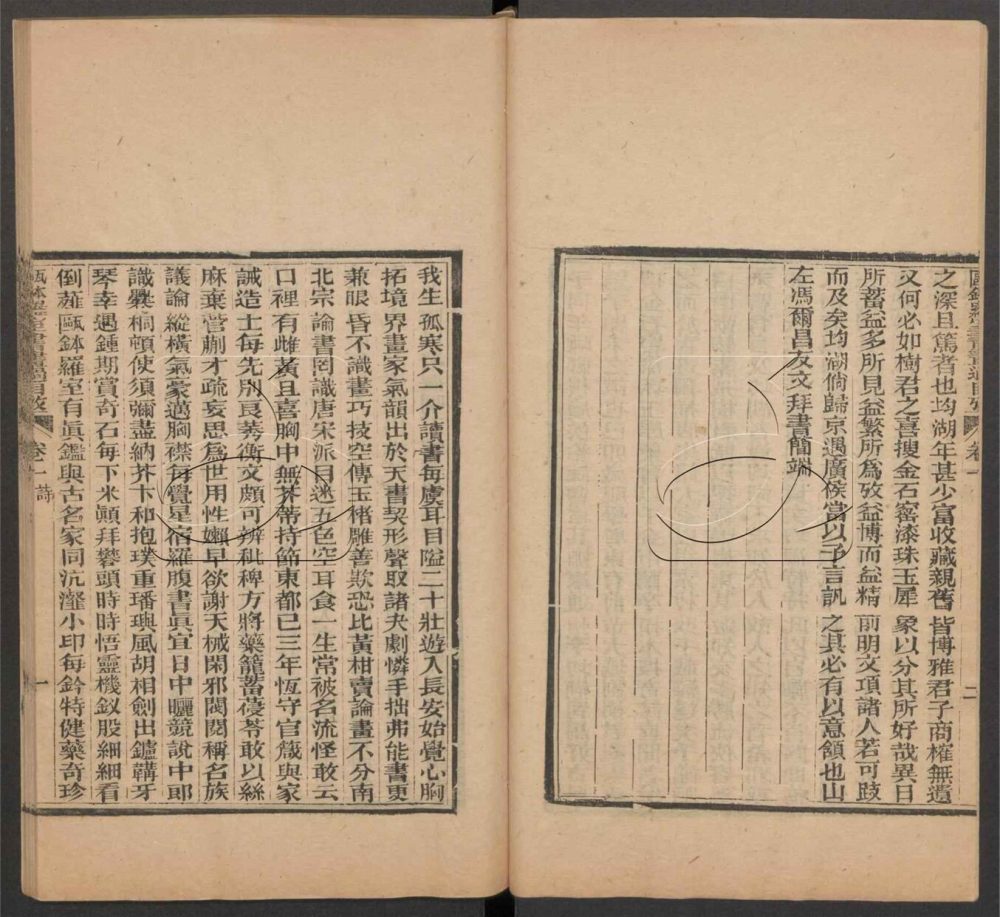 甌鉢羅室書畫過目攷 卷一 二
之深且篤者也均湖年甚少富收藏親舊皆博雅君子商榷無遺
又何必如樹君之喜搜金石窰漆珠玉犀象以分其所好哉異日
所蓄益多所見益繁所爲攷益博而益精前明文項諸人若可跂
而及矣均湖倘歸京遇廣侯當以予言訊之其必有以意領也山
左馮爾昌友文拜書簡端
我生孤寒只一介讀書每慮耳目隘二十壯遊入長安始覺心胸
拓境界畫家氣韻出於天書契形聲取諸夬劇憐手拙弗能書更
兼眼昏不識畫巧技空傳玉楮雕善欺恐比黃柑賣論畫不分南
北宗論書罔識唐宋派目迷五色空耳食一生常被名流怪敢云
口裡有雌黃且喜胸中無芥蔕持節東都已三年恆守官箴與家
誡造士每先刖艮莠衡文頗可辨秕稗方將藥籠蓄蔆苓敢以絲
麻棄菅蒯才疏妄思爲世用性嬾早欲謝天械閑邪閥閱稱名族
議論縱橫氣豪邁胸襟每覺星宿羅腹書眞宜日中曬競說中郎
識爨桐頓使須彌盡納芥卞和抱璞重璠璵風胡相劍出鑪韛牙
琴幸遇鍾期賞奇石每下米顚拜礬頭時時悟靈機釵股細細看
倒薤甌鉢羅室有眞鑑與古名家同沆瀣小印每鈐特健藥奇珍
甌鉢羅室書畫過目攷 卷一 詩 一